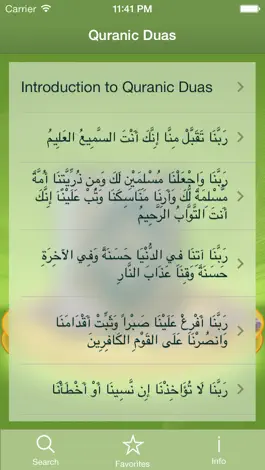 Carrier 11:41 PM
Quranic Duas
Introduction to Quranic Duas
رَبَّنَا تَقَبَّلْ مِنَّا إِنَّكَ أَنْتَ السَّمِيعُ العَلِيمُ
رَبَّنَا وَاجْعَلْنَا مُسْلِمَيْنِ لَكَ وَمِن ذُرِّيَّتِنَا أُمَّةً
مُسْلِمَةً لَّكَ وَأَرِنَا مَنَاسِكَنَا وَتُبْ عَلَيْنَا إِنَّكَ
أَنتَ التَّوَّابُ الرَّحِيمُ
رَبَّنَا آتِنَا فِي الدُّنْيَا حَسَنَةً وَفِي الآخِرَةِ
حَسَنَةً وَقِنَا عَذَابَ النَّارِ
رَبَّنَا أَفْرِغْ عَلَيْنَا صَبْراً وَثَبِّتْ أَقْدَامَنَا
وَانصُرْنَا عَلَى القَوْمِ الكَافِرِينَ
رَبَّنَا لَا تُؤَاخِذْنَا إِن نَّسِينَا أَوْ أَخْطَأْنَا
Search Favorites Info